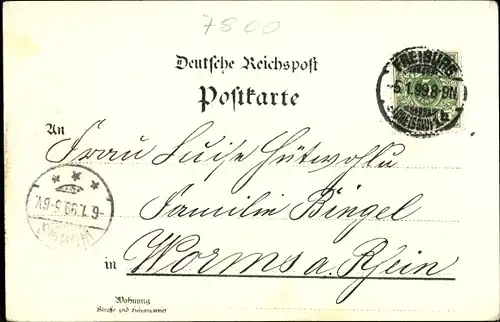 7500
Deutsche Reichspost
Postkarte
FREIBURG
-5.1.99.8-9N
An
Frau Luise Hütwohl
Familie Bingel
-6.1.99.5-6V.
WORMS
in Worms a. Rhein
Wohnung
Straße und Hausnummer